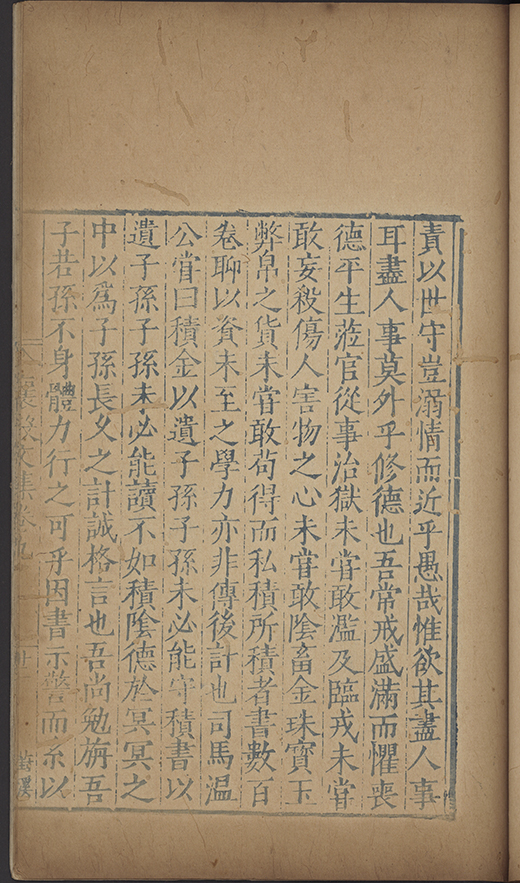 責以世守豈溺情而近乎愚哉惟欲其盡人事
耳盡人事莫外乎修德也吾常戒盛滿而懼喪
德平生蒞官從事治獄未甞敢濫及臨戎未甞
敢妄殺傷人害物之心未甞敢隂畜金珠寳玉
弊帛之貨未甞敢苟得而私積所積者書數百
卷聊以資未至之學力亦非傳後計也司馬温
公甞曰積金以遺子孫子孫未必能守積書以
遺子孫子孫未必能讀不如積隂德於冥冥之
中以爲子孫長久之計誠格言也吾尚勉旃吾
子若孫不身體力行之可乎因書示警而系以
文集卷九